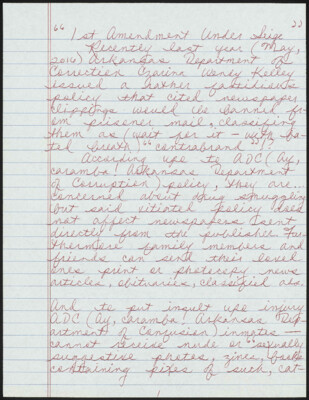 "1st Amendment Under Seige"
Recently last year (May,
2016) Arkansas Department of
Correction Czarina Wendy Kelley
issued a rather fastidious
policy that cited newspaper
clippings would be banned fr-
om prisoner mail, classifying
them as (wait for it - with ba-
ted breath) "contraband"!
According upe to ADC (Ay,
caramba! Arkansas Department
of Corruption) policy, they are...
concerned about drug smuggling
but said vitiated policy does
not affect newspapers sent
directly from the publisher. Fur-
thermore family members and
friends can send their loved
ones print or photocopy news
articles, obituaries, classified ads.
And to put insult upe injury
ADC (Ay, caramba! Arkansas Dep-
artment of Confusion) inmates —
cannot receive nude or "sexually
suggestive photos, zines, books
containing pixes of such, cat-
1